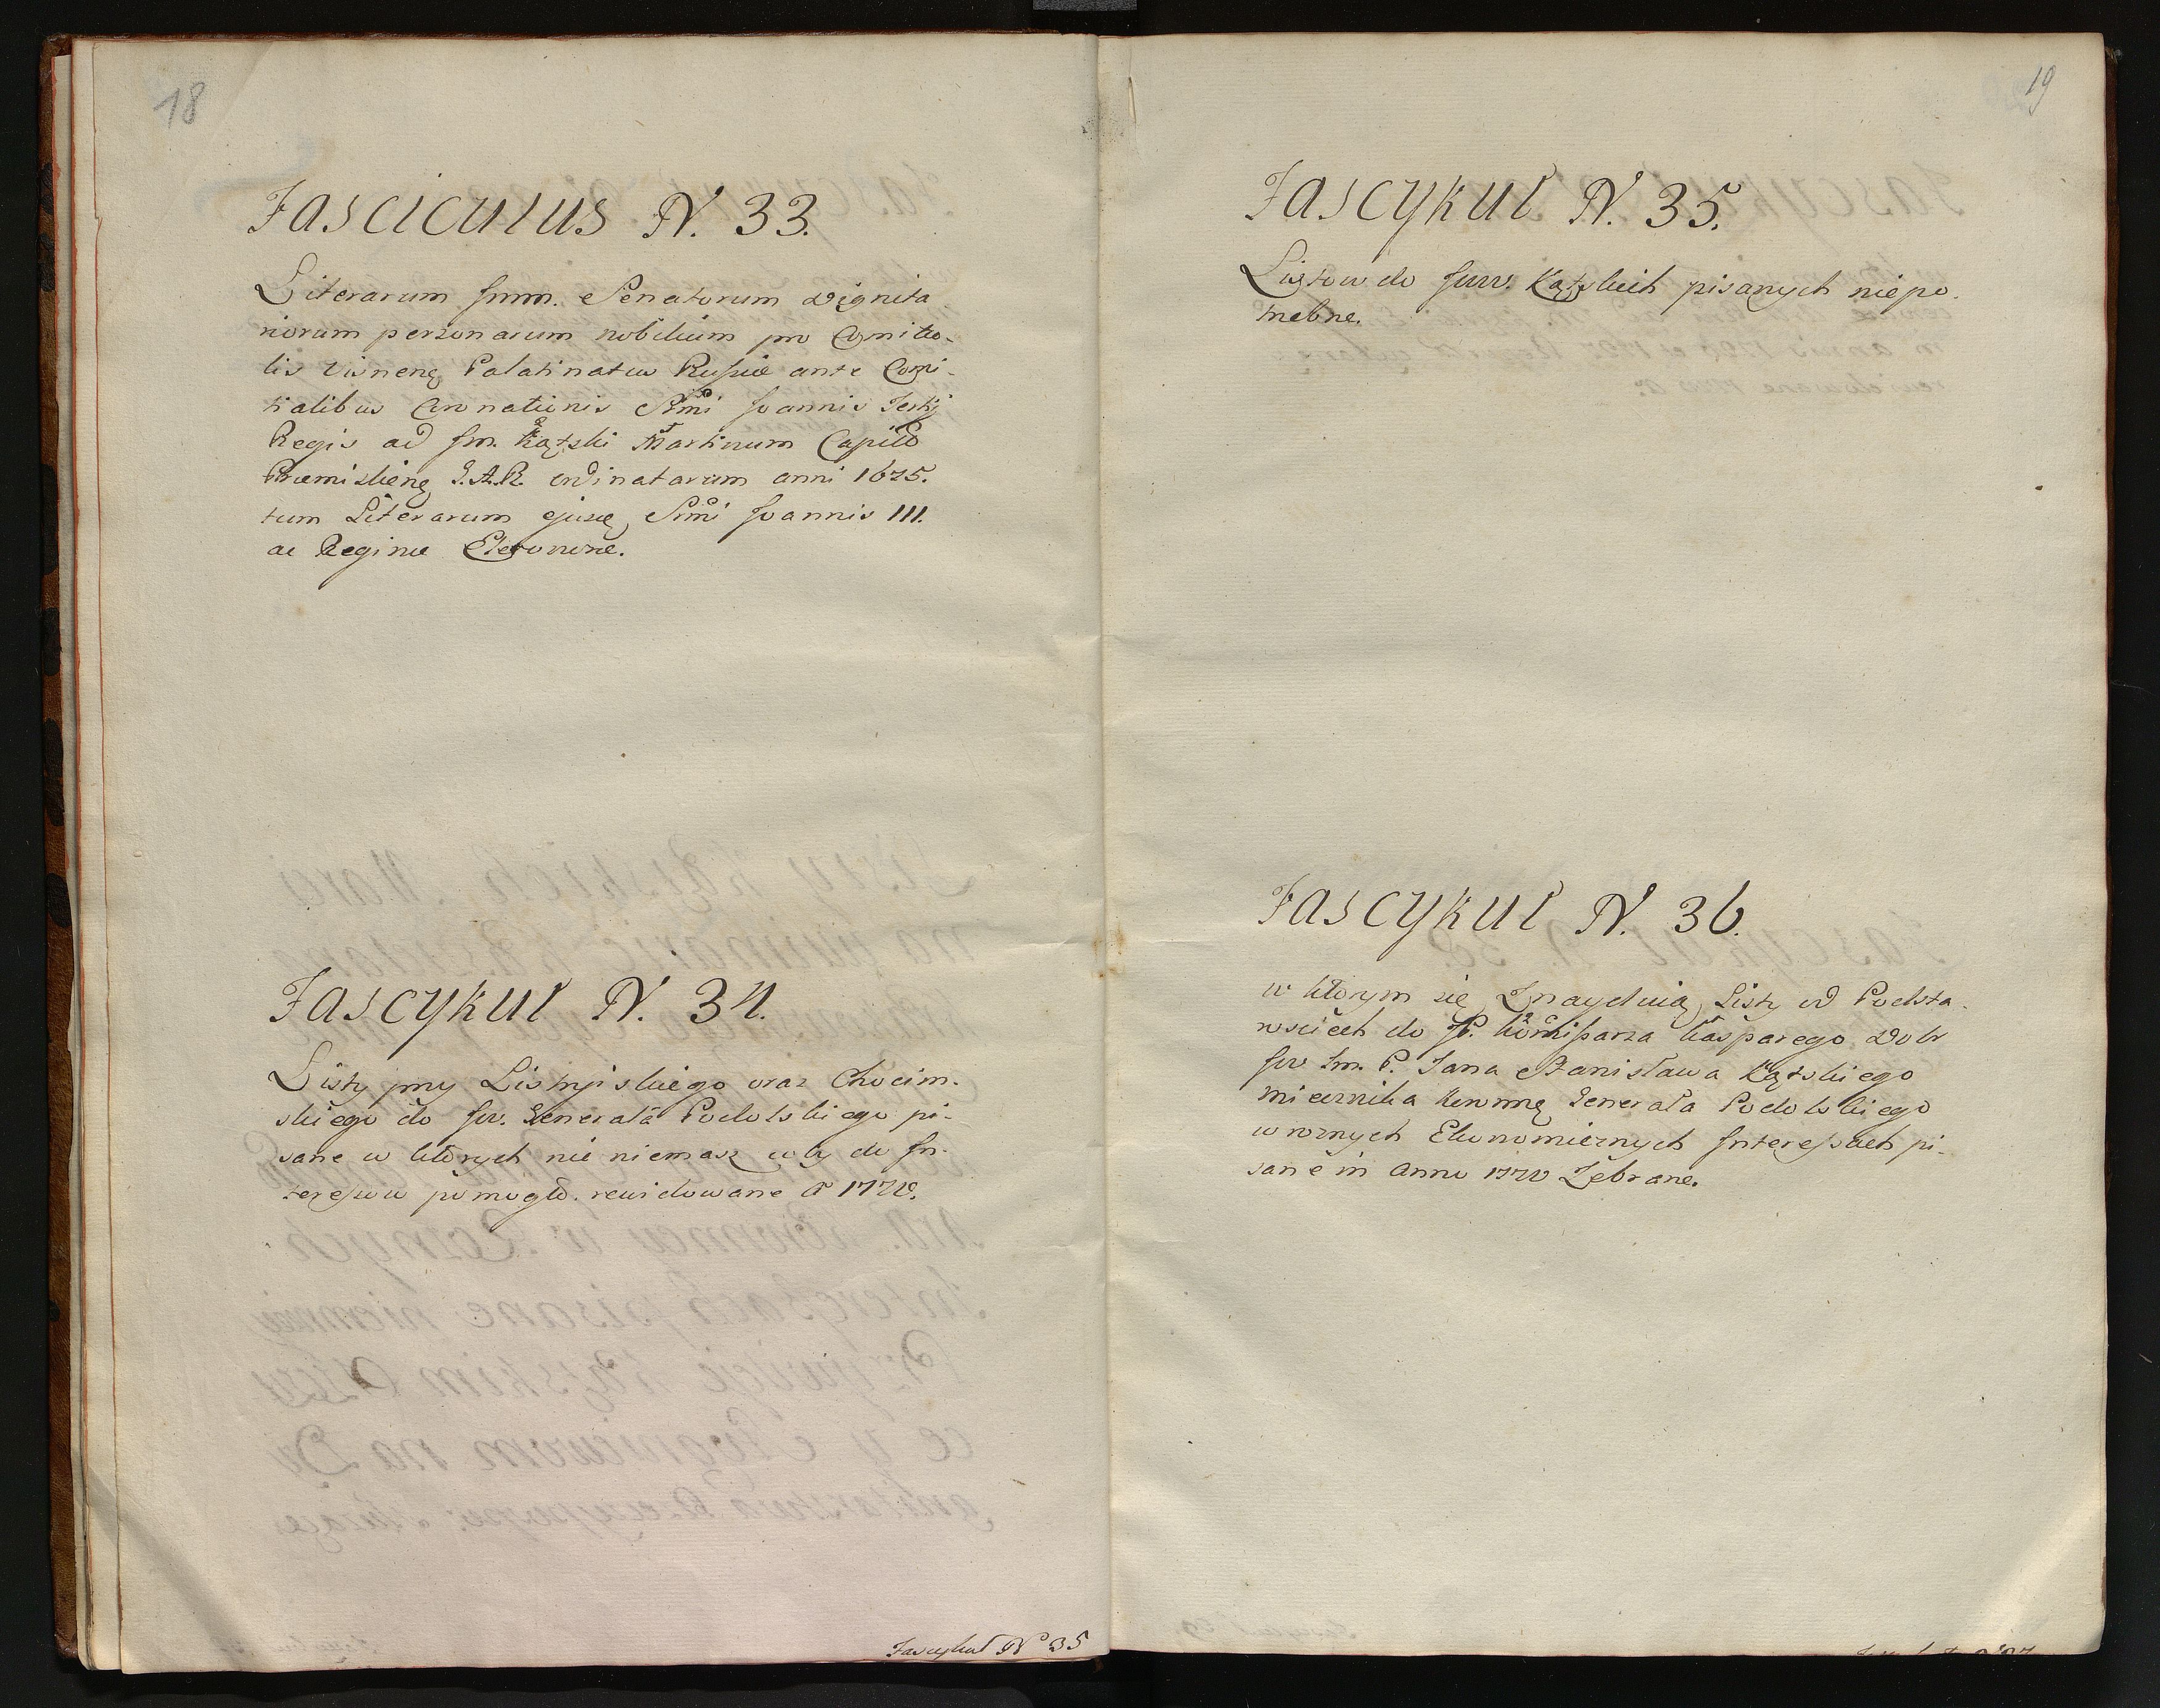 18
Fasciculus N. 33.
Literarum Imm. Senatorum Dignita
riorum personarum nobilium pro Comitio-
lis Visneng Palatinatus Russiæ ante Comi-
tialibus Coronationis Srmi Joannis Tertij
Regis ad Im. Kątski Martinum Capitd
Præmisliens S.A.R. ordinatarum anni 1675.
tum Literarum ejusq Srmi Joannis III.
ac Reginæ
Fascykuł N. 34.
Listy przy Listryiskiego oraz Chocim-
skiego do Jw. Generała Podolskiego pi-
sane w ktorych nic niemasz coby do In-
teressow pomogło. rewidowane Ao
Fascykuł No 35
19
Fascykuł N. 35.
Listow do Jww. Kątskich pisanych niepo-
trzebne.
Fascykuł N. 36.
w ktorym się Znayduią Listy od Podsta-
rościch do JP. Kommissarza Kasparego Dobr
Jw Im. P. Jana Stanisława Kątskiego
Miecznika Koronng Generała Podolskiego
w roznych Ekonomicznych Interessach pi-
sane in Anno Zebrane.